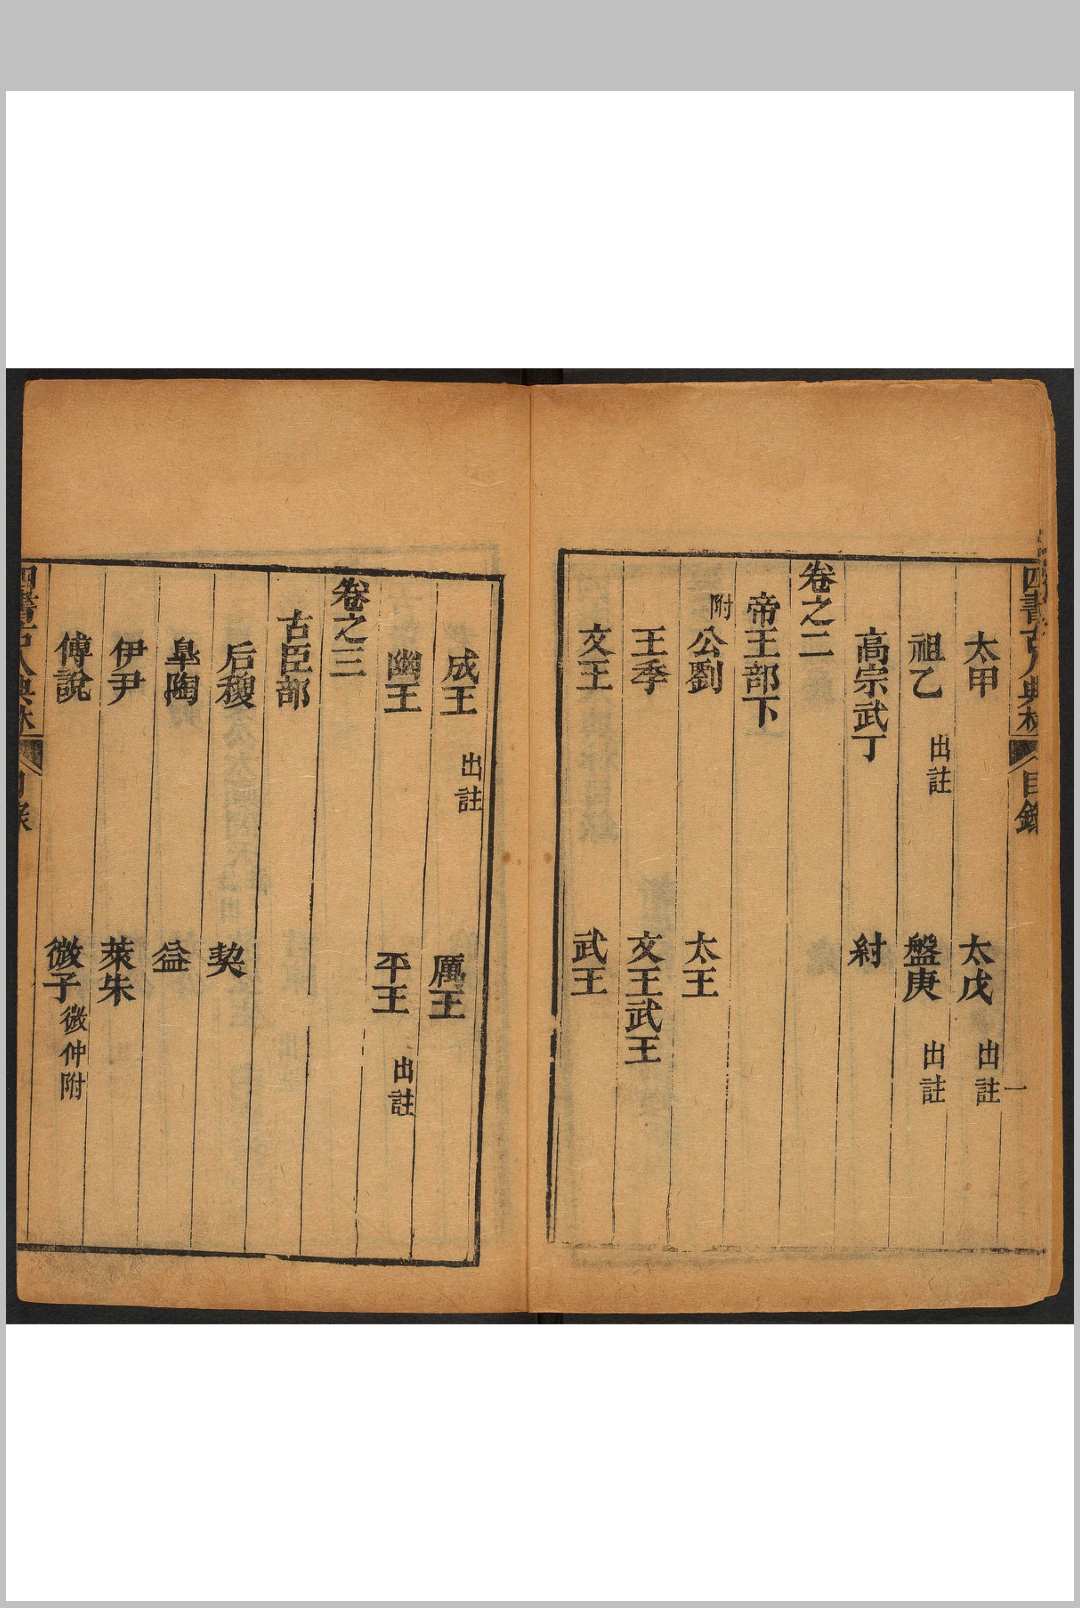 四書古人典林 目錄 一
太甲 太戊 出註
祖乙 出註 盤庚 出註
高宗武丁 紂
卷之二
帝王部下
附公劉 太王
王季 文王武王
文王 武王
成王 出註 厲王
幽王 平王 出註
卷之三
古臣部
后稷 契
臯陶 益
伊尹 萊朱
傅說 微子 微仲附
四書古人典林 目錄